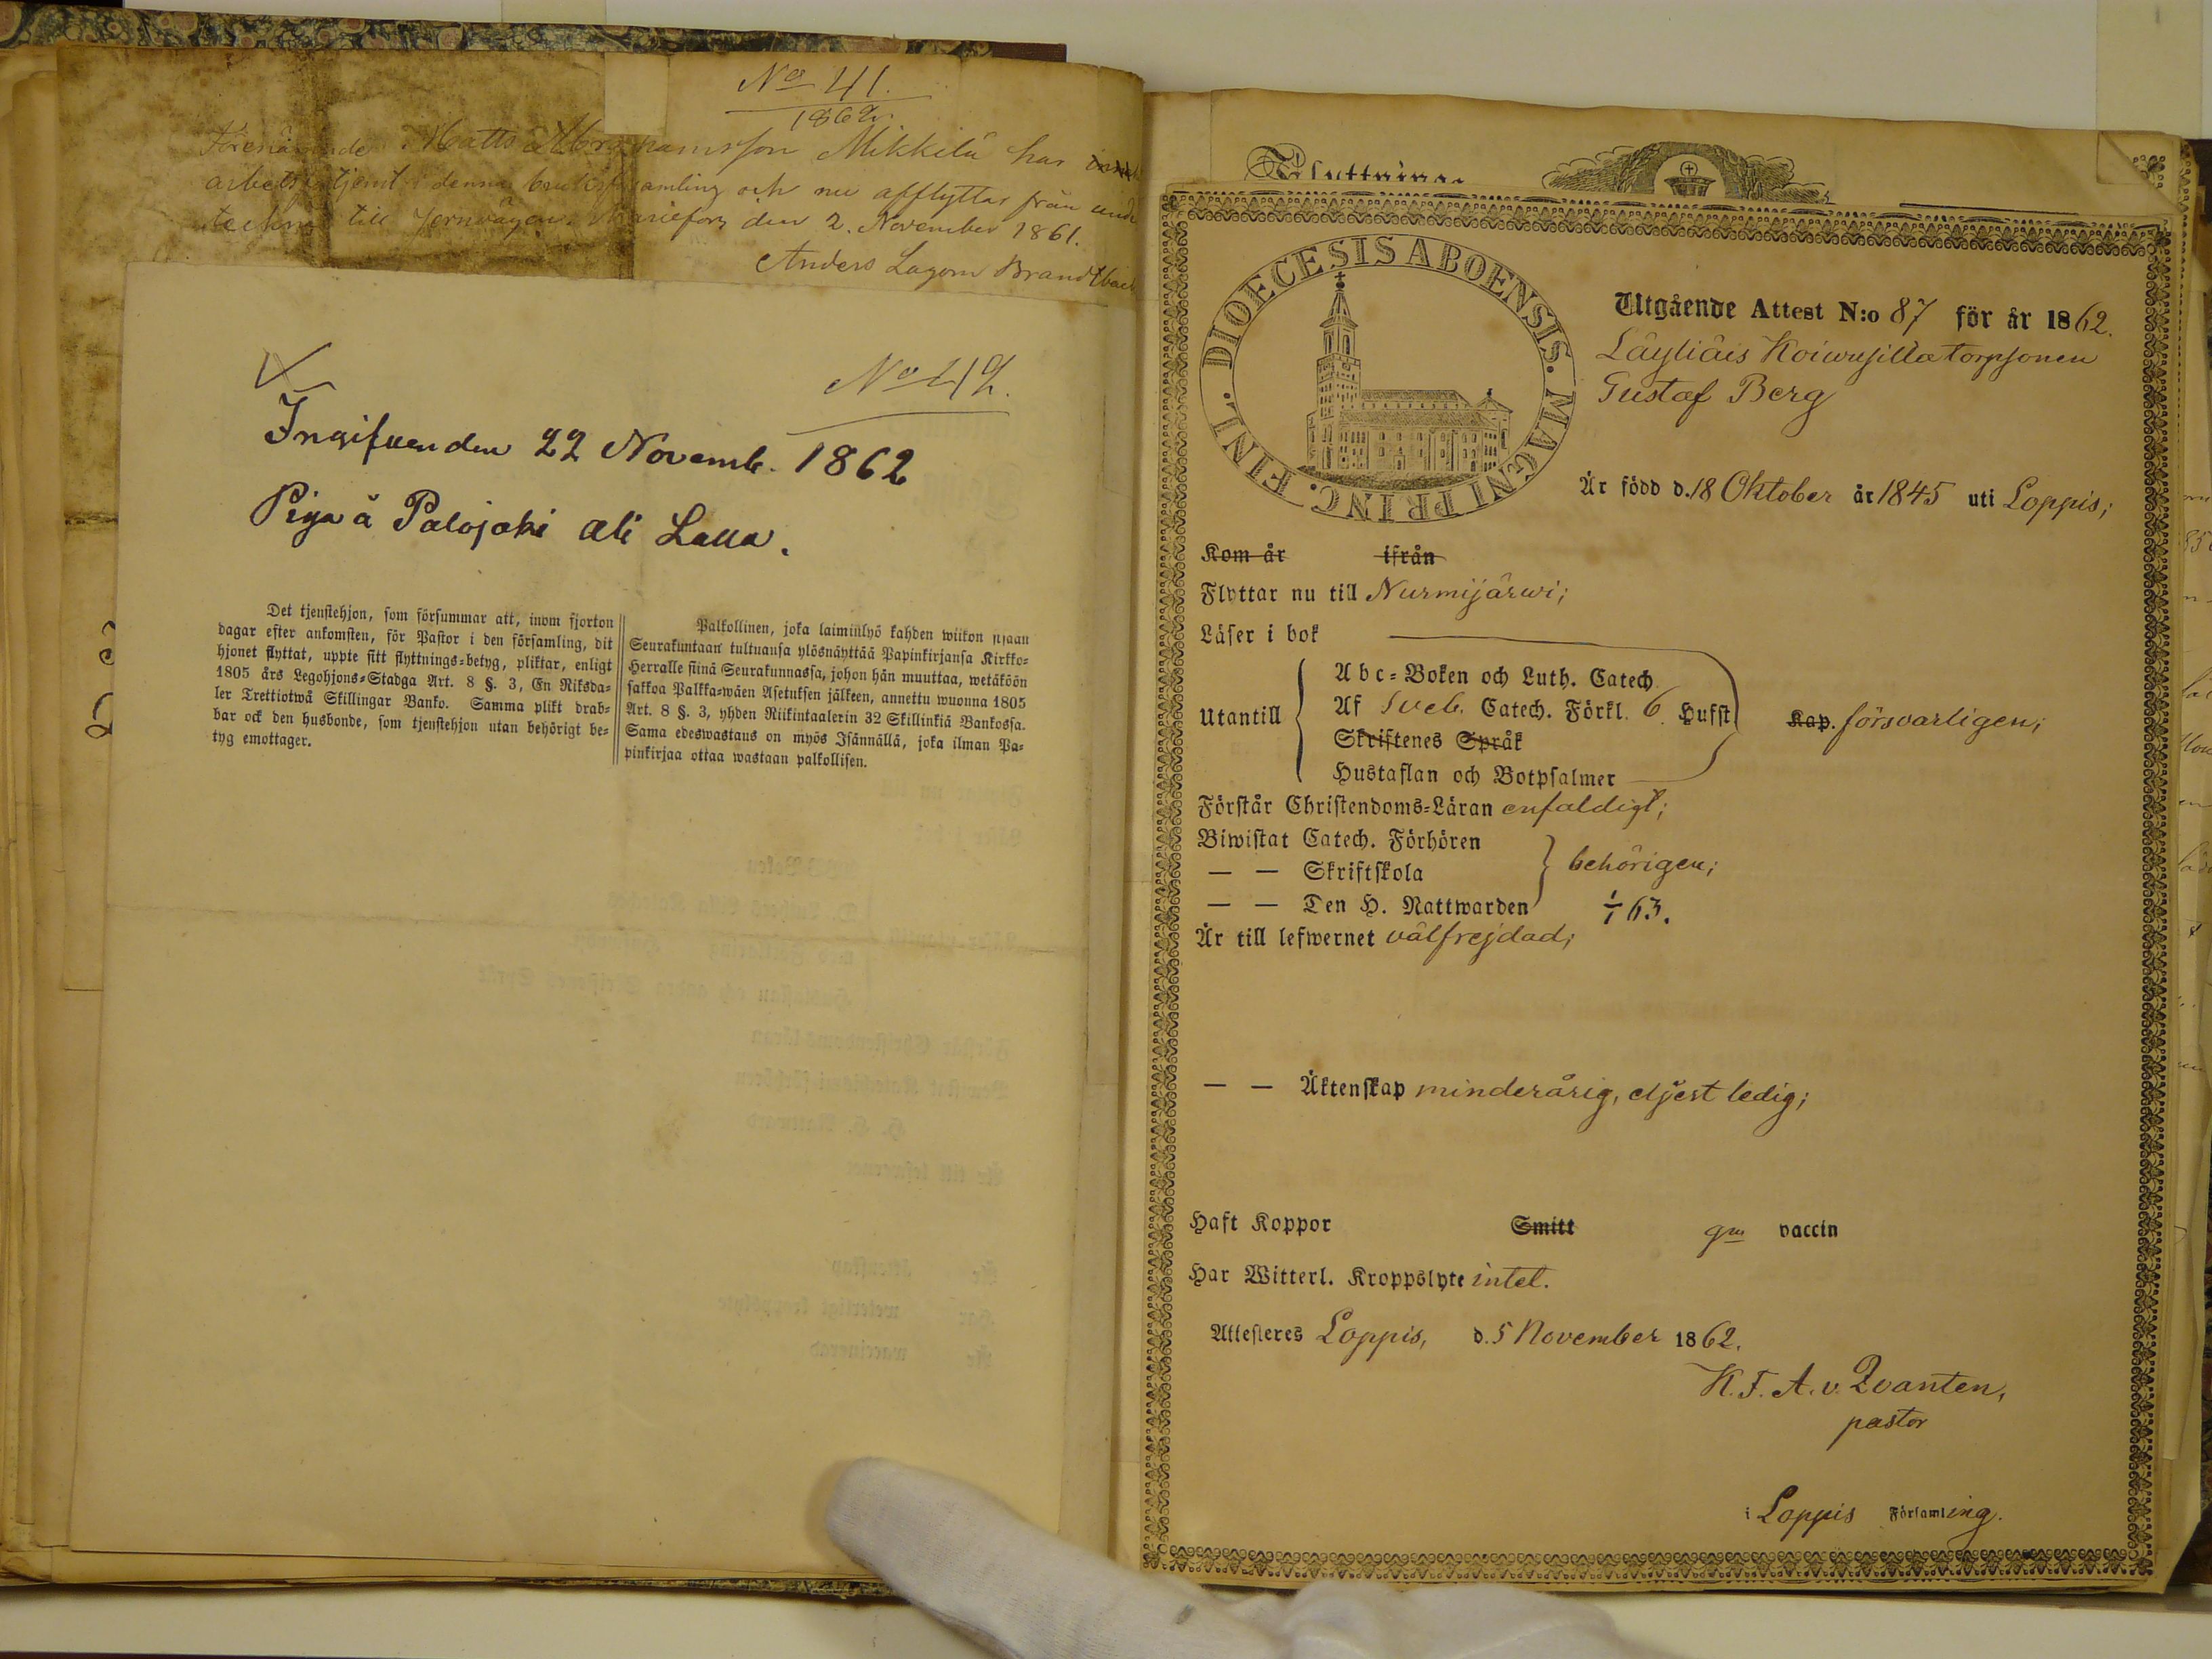 No 41.
1862.
Matts Abrahamsson Mikkilä har
arbets tjent i denna bruksförsamling och nu afflyttar från
till Jernvägen. Mariefors den 2. November 1861.
Anders Lagom
No 42.
Ingifven den 22 Novemb. 1862
Piga å Palojoki ali Lalla.
Det tjenstehjon, som försummar att, inom fjorton
dagar efter ankomsten, för Pastor i den församling, dit
hjonet flyttat, uppte sitt flyttnings-betyg, pliktar, enligt
1805 års Legohjons-Stadga Art. 8 §. 3, En Riksda-
ler Trettiotwå Skillingar Banko. Samma plikt drab-
bar ock den husbonde, som tjenstehjon utan behörigt be-
tyg emottager.
Palkollinen, joka laiminlyö kahden wiikon sisään
Seurakuntaan tultuansa ylösnäyttää Papinkirjansa Kirkko-
Herralle siinä Seurakunnassa, johon hän muuttaa, wetäköön
sakkoa Palkka-wäen Asetuksen jälkeen, annettu wuonna 1805
Art. 8 §. 3, yhden Riikintaalerin 32 Skillinkiä Bankossa.
Sama edeswastaus on myös Isännällä, joka ilman Pa-
pinkirjaa ottaa wastaan palkollisen.
DIOECESIS ABOENSIS. MAGNI PRINC. FINL.
Utgående Attest N:o 87 för år 1862.
Läyliäis Koiwusilla torpsonen
Gustaf Berg
Är född d. 18 Oktober år 1845 uti Loppis;
Kom år ifrån
Flyttar nu till Nurmijärwi;
Läser i bok
Utantill
Abc-Boken och Luth. Catech
Af Sveb. Catech. Förkl. 6. Hufst
Skriftenes Språk
Hustaflan och Botpsalmer
Kap. försvarligen;
Förstår Christendoms-Läran enfaldigt;
Biwistat Catech. Förhören
— — Skriftskola
— — Den H. Nattwarden
behörigen;
1/1 63.
Är till lefwernet välfrejdad;
— — Äktenskap minderårig, eljest ledig;
Haft Koppor Smitt gm vaccin
Har Witterl. Kroppslyte intet.
Attesteres Loppis, d. 5 November 1862.
K. F. A. v. Qvanten,
pastor
i Loppis Församling.